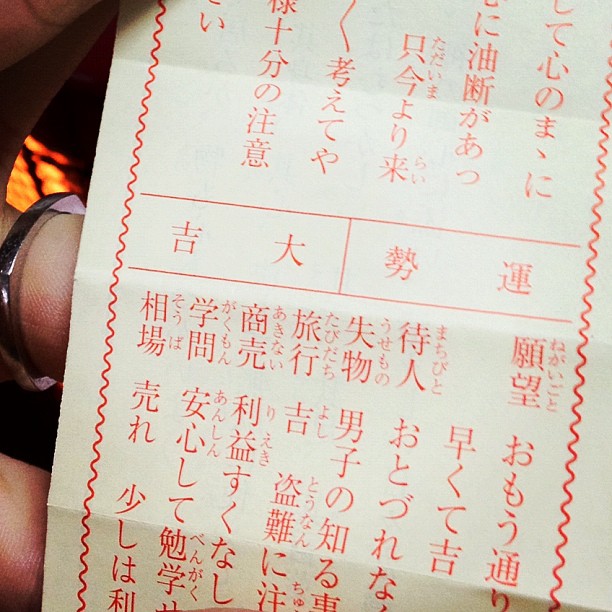 して心のまゝに
心に油断があっ
只今より来
ただいま らい
く考えてや
様十分の注意
さい
運勢 大吉
願望 おもう通り
ねがいごと
早くて吉
待人 おとづれなく
まちびと
失物 男子の知る事
うせもの
旅行 吉 盗難に注
たびだち よし とうなん ちゅ
商売 利益すくなし
あきない りえき
学問 安心して勉学せ
がくもん あんしん べんがく
相場 売れ 少しは利
そうば